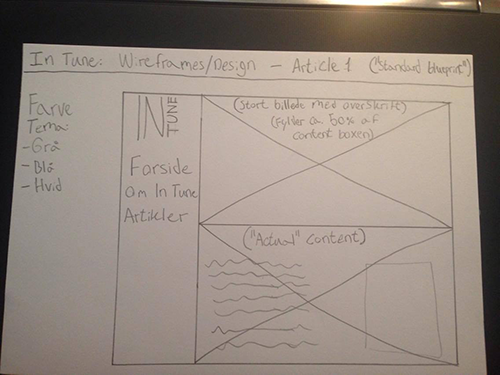 In Tune: Wireframes/Design - Article 1 ("Standard blueprint")
Farve
Tema:
- Grå
- Blå
- Hvid
IN
TUNE
Forside
Om In Tune
Artikler
(Stort billede med overskrift)
(Fylder ca. 50% af
content boxen)
("Actual" content)